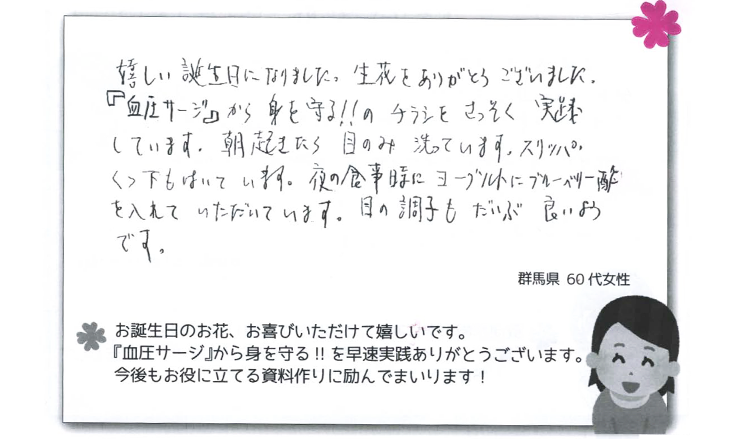 嬉しい誕生日になりました。生花をありがとうございました。
『血圧サージ』から身を守る!!のチラシをさっそく実践
しています。朝起きたら目のみ洗っています。スリッパ、
くつ下もはいています。夜の食事時にヨーグルトにブルーベリー酢
を入れていただいています。目の調子もだいぶ良いよう
です。
群馬県 60代女性
お誕生日のお花、お喜びいただけて嬉しいです。
『血圧サージ』から身を守る!!を早速実践ありがとうございます。
今後もお役に立てる資料作りに励んでまいります！